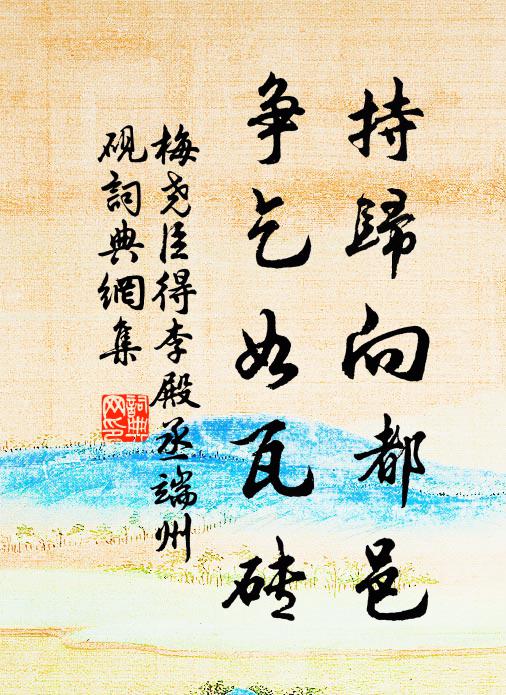 持歸向都邑
爭乞如瓦磚
梅堯臣得李殿丞端州
硯詞典網集
詞典
网印